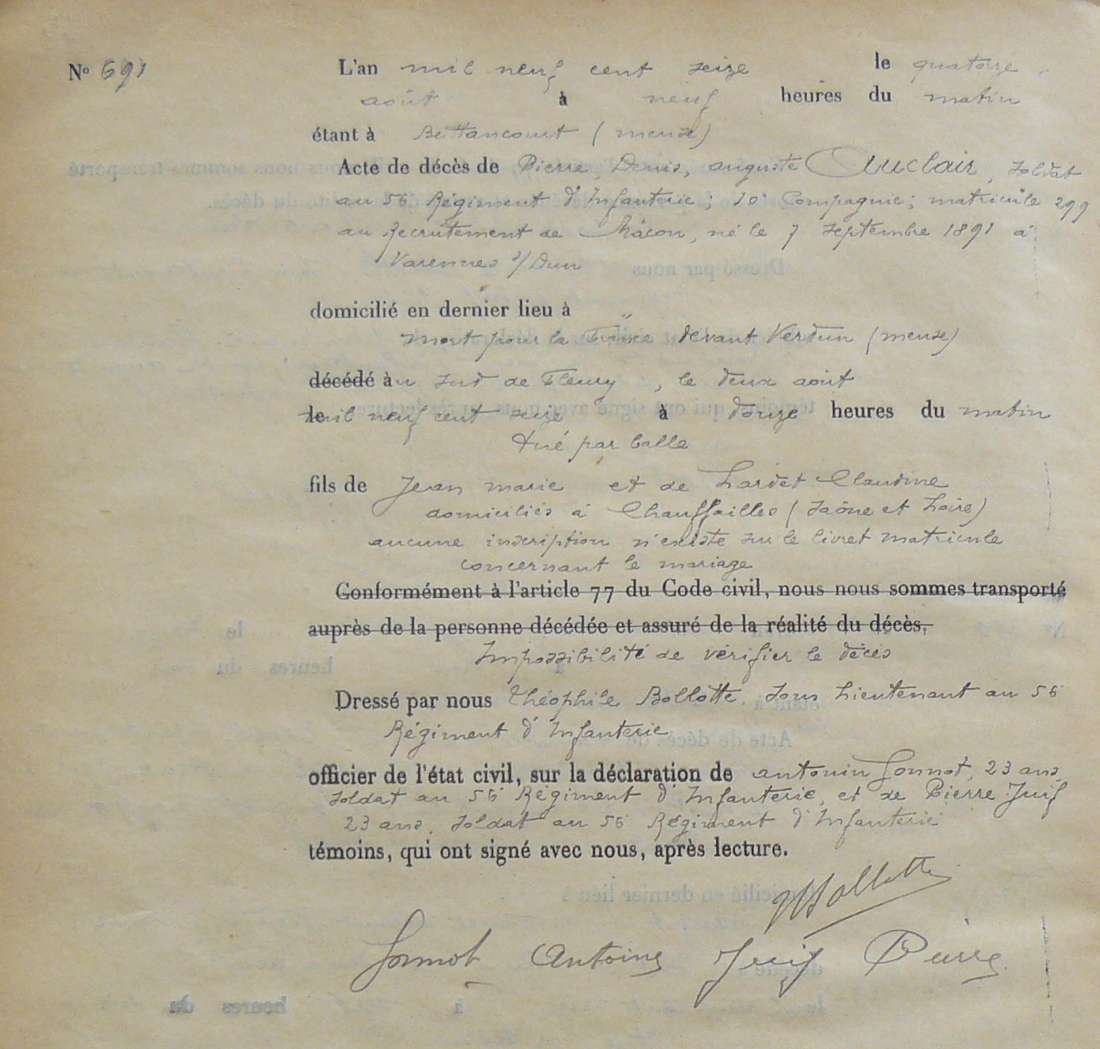 N° 691
L'an mil neuf cent seize le quatorze
août à neuf heures du matin
étant à Bettancourt (meuse)
Acte de décès de Pierre Denis, auguste Auclair, soldat
au 56 Régiment d'Infanterie; 10 Compagnie; matricule 299
au Recrutement de Mâcon, né le 7 septembre 1891 à
Varennes s/Dun
domicilié en dernier lieu à
mort pour la France devant Verdun (meuse)
décédé àu sud de Fleury, le deux août
le mil neuf cent seize à douze heures du matin
tué par balle
fils de Jean marie et de Lardet Claudine
domiciliés à Chauffailles (Saône et Loire)
aucune inscription n'existe sur le livret matricule
concernant le mariage
Conformément à l'article 77 du Code civil, nous nous sommes transporté
auprès de la personne décédée et assuré de la réalité du décès,
Impossibilité de vérifier le décès
Dressé par nous Théophile Bollotte, sous Lieutenant au 56
Régiment d'Infanterie
officier de l'état civil, sur la déclaration de antonin Jonnot, 23 ans,
soldat au 56 Régiment d'Infanterie, et de Pierre Juif
23 ans, soldat au 56 Régiment d'Infanterie
témoins, qui ont signé avec nous, après lecture.
Bollotte
Jonnot Antoine Juif Pierre